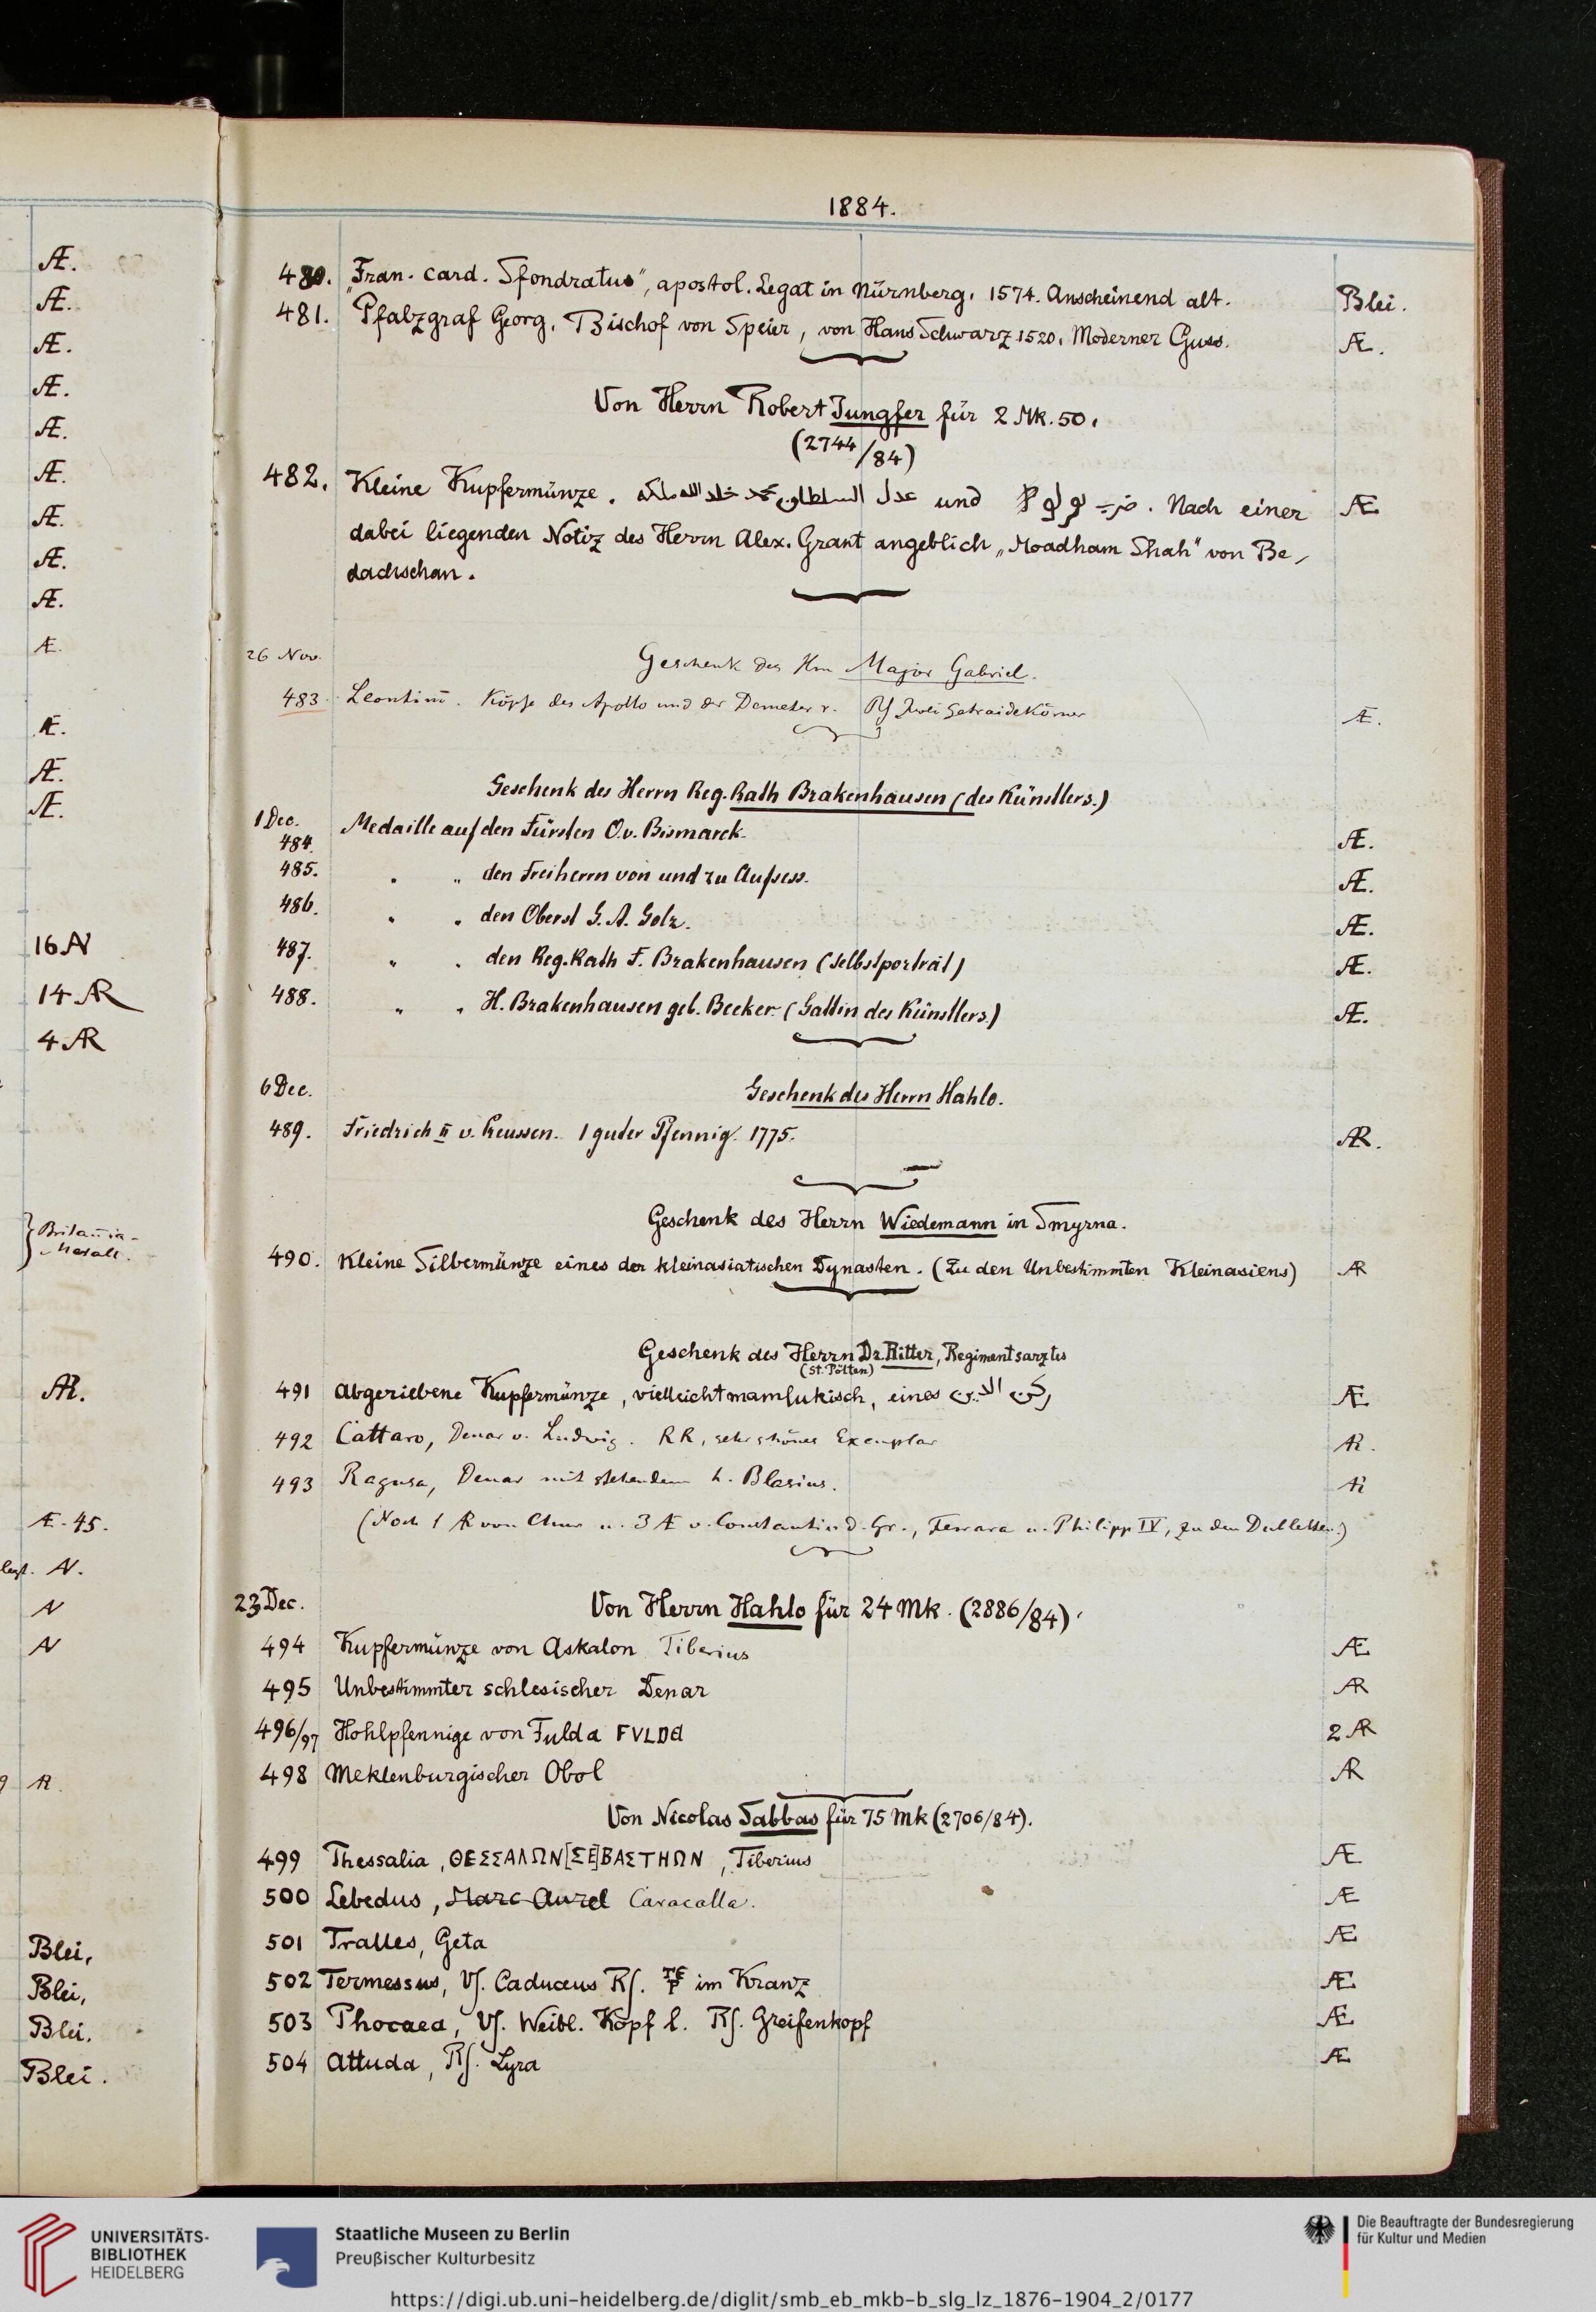 1884.
480. „Fran. card. Sfondratus“, apostol. Legat in Nürnberg. 1574. Anscheinend alt. Blei.
481. Pfalzgraf Georg, Bischof von Speier, von Hans Schwarz 1520. Moderner Guss. Æ.
Von Herrn Robert Jungfer für 2 Mk. 50.
(2744/84)
482. Kleine Kupfermünze. عدل السلطان محمد خلد الله ملكه und ضرب. Nach einer Æ
dabei liegenden Notiz des Herrn Alex. Grant angeblich „Moadham Shah“ von Be-
dachschan.
26 Nov. Geschenk des Hrn Major Gabriel.
483. Leontini. Köpfe des Apollo und der Demeter r. Rf Zwei Getraidekörner Æ.
Geschenk des Herrn Reg. Rath Brakenhausen (des Künstlers.)
1 Dec.
484. Medaille auf den Fürsten O. v. Bismarck. Æ.
485. " " den Freiherrn von und zu Aufsess. Æ.
486. " " den Oberst G. A. Golz. Æ.
487. " " den Reg. Rath F. Brakenhausen (Selbstporträt) Æ.
488. " " H. Brakenhausen geb. Becker (Gattin des Künstlers.) Æ.
6 Dec. Geschenk des Herrn Hahlo.
489. Friedrich II v. Preussen. 1 guter Pfennig. 1775. AR.
Geschenk des Herrn Wiedemann in Smyrna.
490. Kleine Silbermünze eines der kleinasiatischen Dynasten. (Zu den Unbestimmten Kleinasiens) AR
Geschenk des Herrn Dr. Ritter, Regimentsarztes
(St. Pölten)
491 Abgeriebene Kupfermünze, vielleicht mamlukisch, eines ركن الدين Æ
492 Cattaro, Denar v. Ludwig. RR, sehr schönes Exemplar AR.
493 Ragusa, Denar mit stehendem h. Blasius. AR
(Noch 1 AR von Chur u. 3 Æ v. Constantin d. Gr., Ferrara u. Philipp IV, zu den Dubletten.)
23 Dec. Von Herrn Hahlo für 24 Mk. (2886/84).
494 Kupfermünze von Askalon Tiberius Æ
495 Unbestimmter schlesischer Denar AR
496/97 Hohlpfennige von Fulda FVLDA 2 AR
498 Meklenburgischer Obol AR
Von Nicolas Sabbas für 75 Mk (2706/84).
499 Thessalia, ΘΕΣΣΑΛΩΝ[ΣΕ]ΒΑΣΤΗΩΝ, Tiberius Æ
500 Lebedus, Marc Aurel Caracalla. Æ
501 Tralles, Geta Æ
502 Termessus, Vf. Caduceus Rf. im Kranz Æ
503 Phocaea, Vf. Weibl. Kopf l. Rf. Greifenkopf Æ
504 Attuda, Rf. Lyra Æ
Æ.
Æ.
Æ.
Æ.
Æ.
Æ.
Æ.
Æ.
Æ.
Æ.
Æ.
Æ.
Æ.
16 AV
14 AR
4 AR
Britannia-
Metall.
AR.
Æ. 45.
AV.
AV
AV
AR.
Blei,
Blei,
Blei.
Blei.
UNIVERSITÄTS-
BIBLIOTHEK
HEIDELBERG
Staatliche Museen zu Berlin
Preußischer Kulturbesitz
Die Beauftragte der Bundesregierung
für Kultur und Medien
https://digi.ub.uni-heidelberg.de/diglit/smb_eb_mkb-b_slg_lz_1876-1904_2/0177